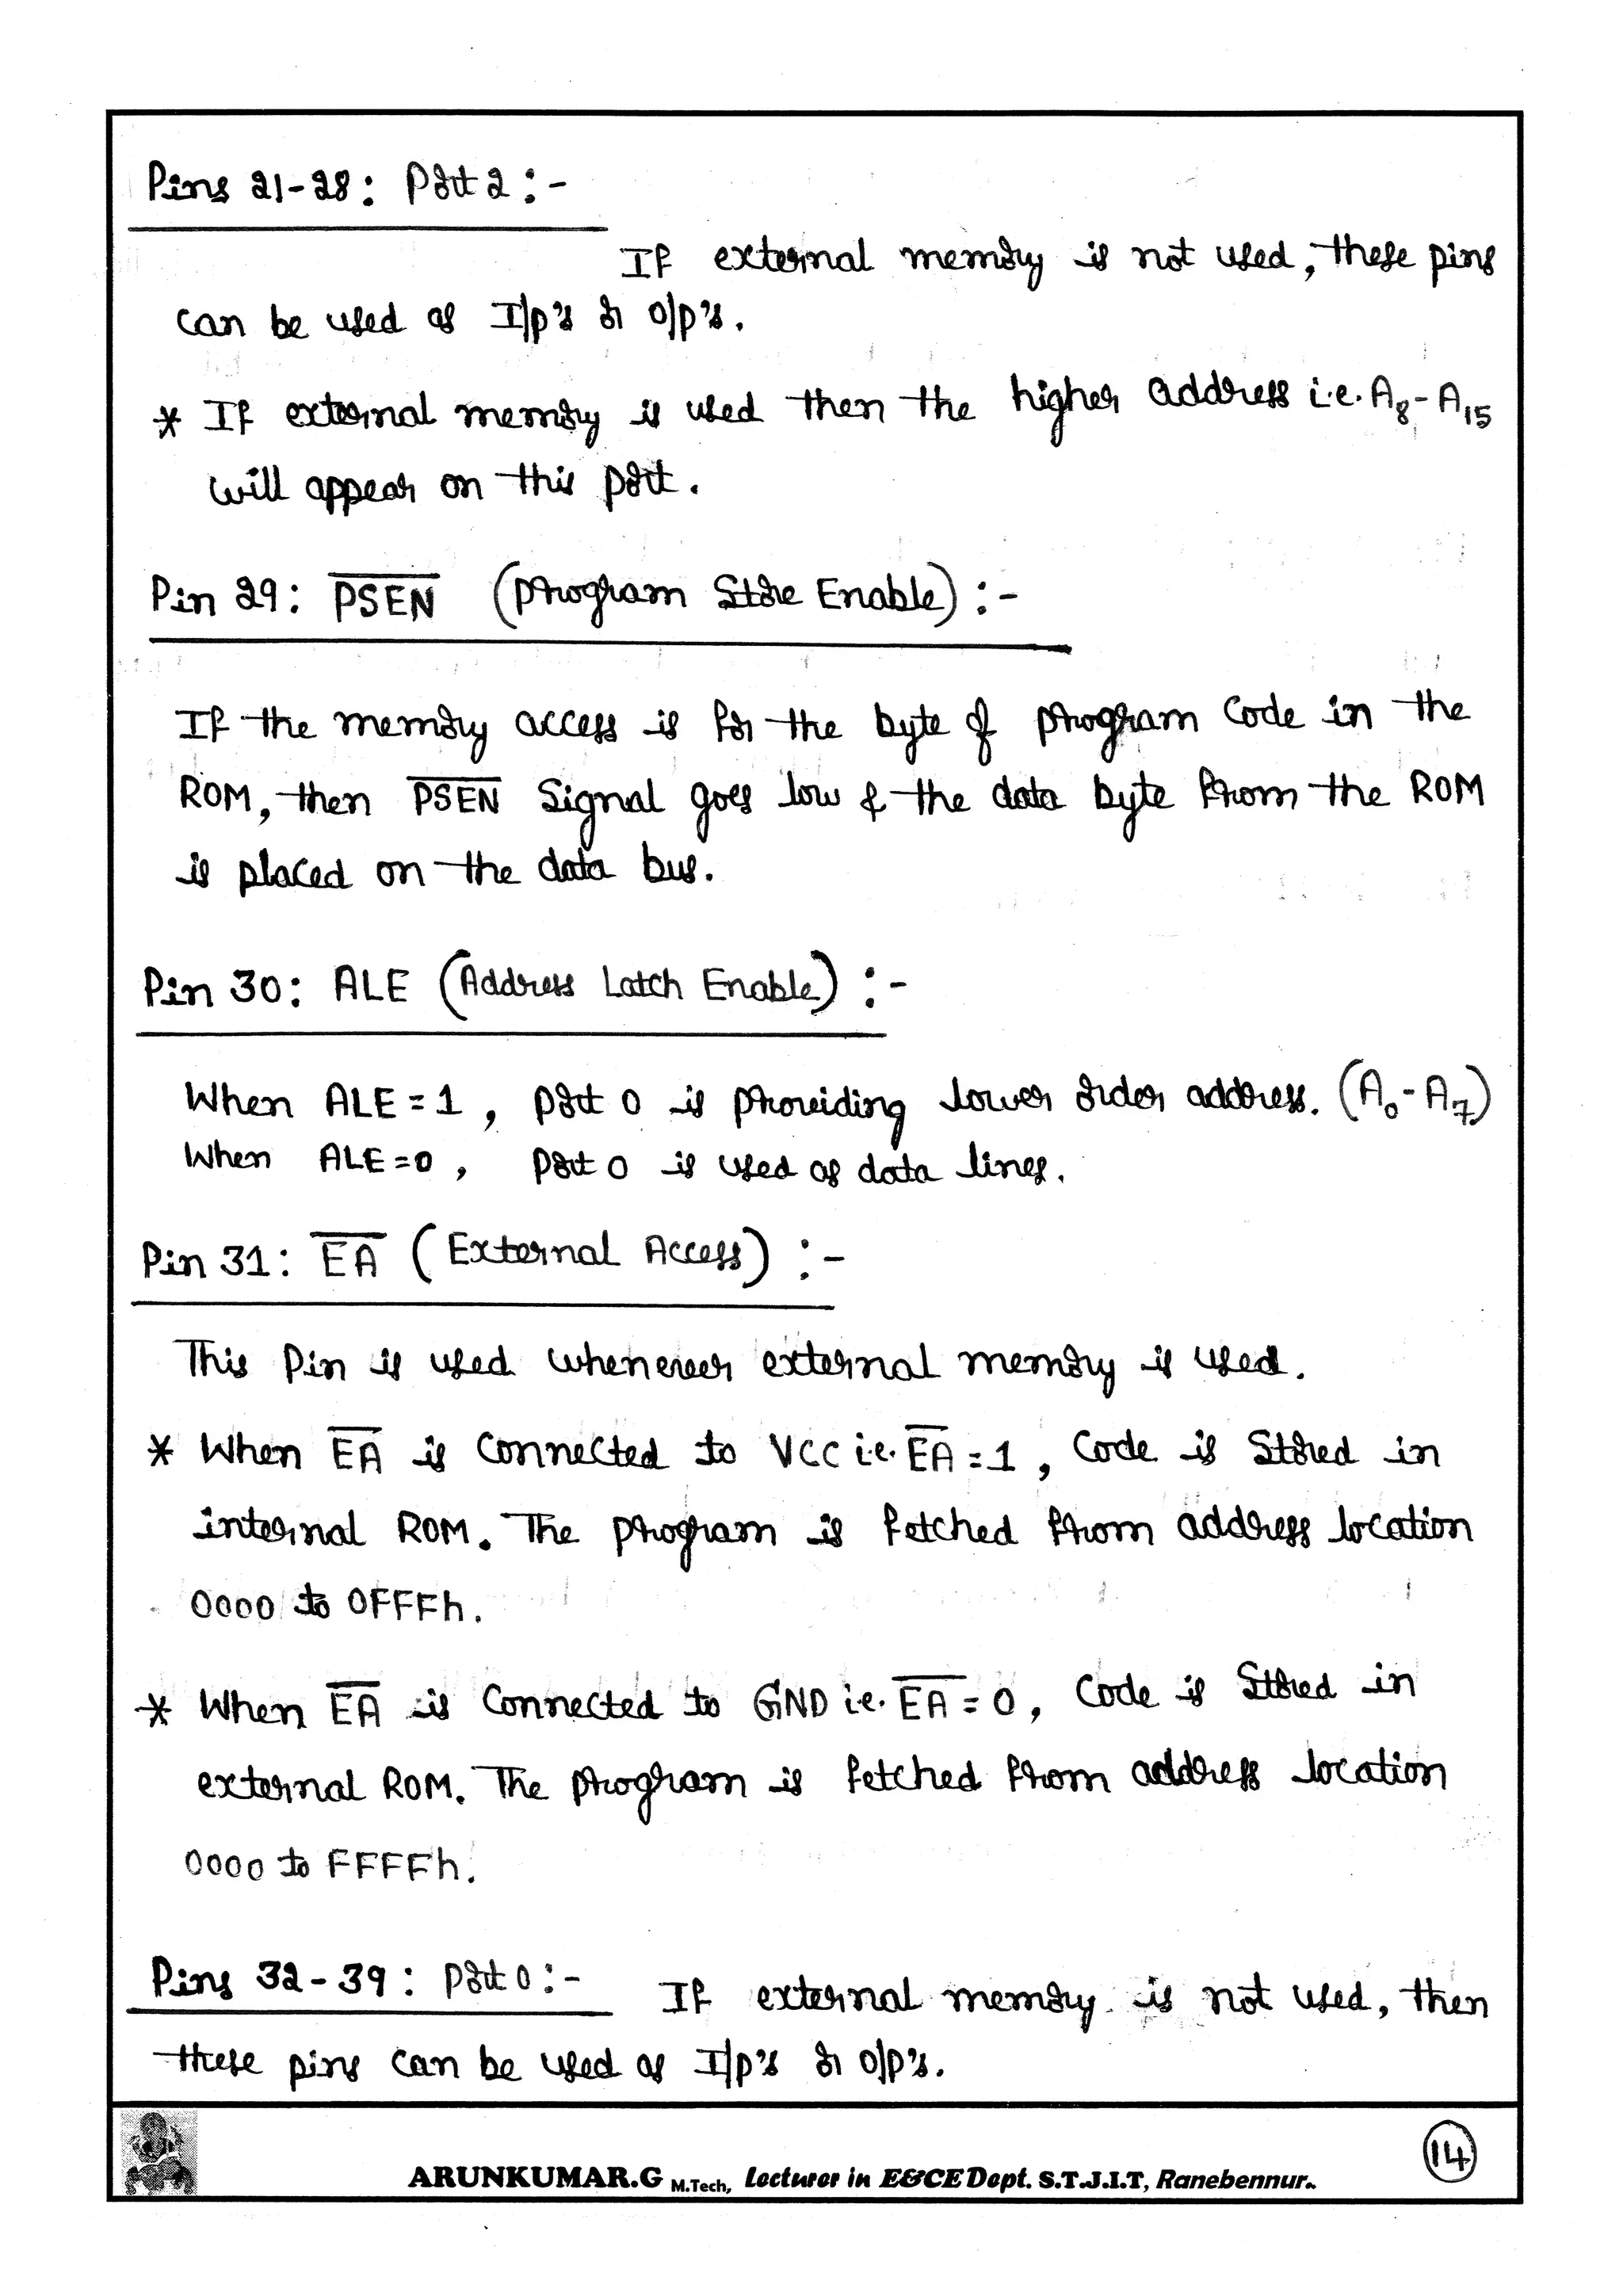 Pins 21-28: Port 2 :-
If external memory is not used, these pins
can be used as I/p's or o/p's.
* If external memory is used then the higher address i.e. A₈-A₁₅
will appear on this port.
Pin 29: P̅S̅E̅N̅ (Program Store Enable) :-
If the memory access is for the byte of program code in the
ROM, then P̅S̅E̅N̅ Signal goes low & the data byte from the ROM
is placed on the data bus.
Pin 30: ALE (Address Latch Enable) :-
When ALE = 1, port 0 is providing lower order address. (A₀-A₇)
When ALE = 0, port 0 is used as data lines.
Pin 31: E̅A̅ (External Access) :-
This Pin is used whenever external memory is used.
* When E̅A̅ is connected to VCC i.e. E̅A̅ = 1, Code is Stored in
internal ROM. The program is fetched from address location
0000 to 0FFFh.
* When E̅A̅ is connected to GND i.e. E̅A̅ = 0, Code is Stored in
external ROM. The program is fetched from address location
0000 to FFFFh.
Pins 32-39: Port 0 :- If external memory is not used, then
these pins can be used as I/p's or o/p's.
ARUNKUMAR.G M.Tech, Lecturer in E&CE Dept. S.T.J.I.T, Ranebennur..
14